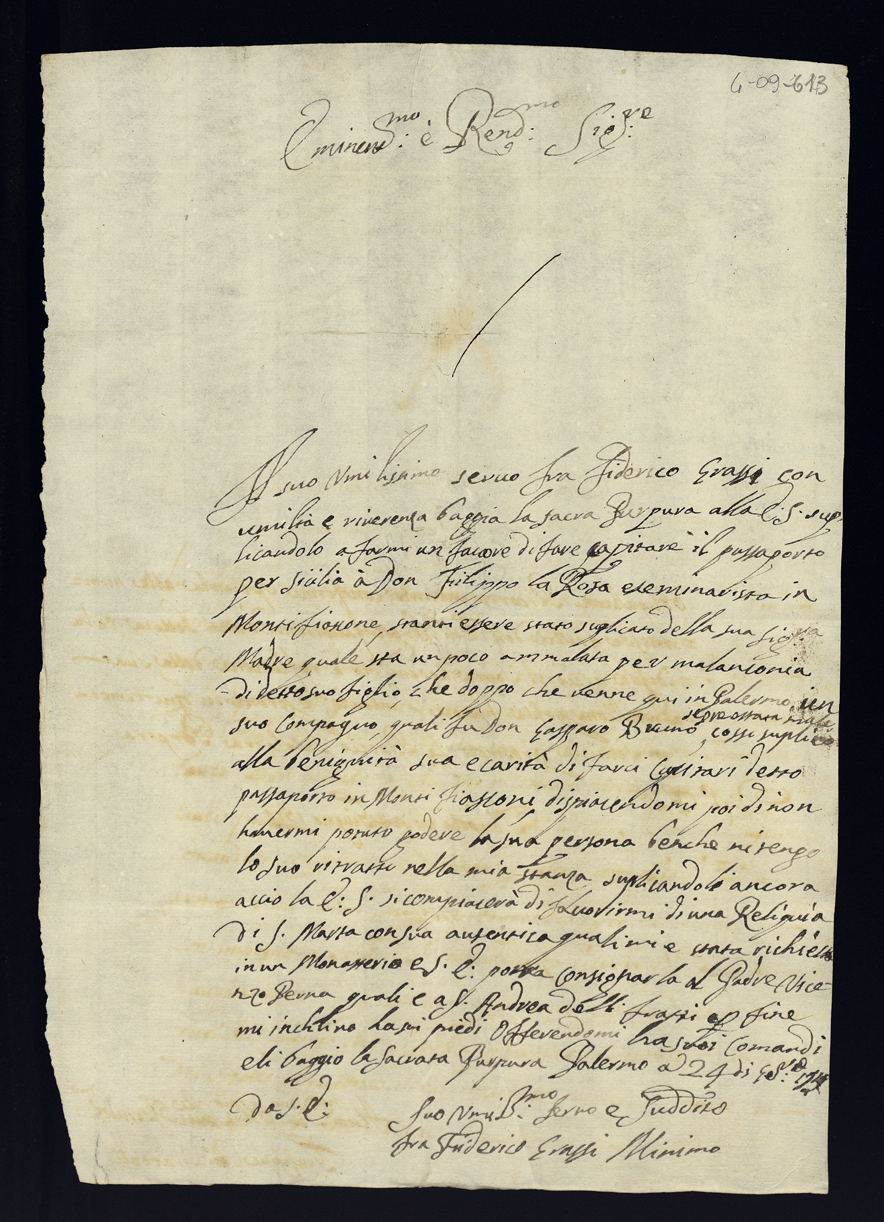 4-09-613
Eminend.mo: è Rend.mo: Sig.re:
Il suo Vmilissimo seruo fra Fiderico Grassi con
umiltà e riverenza baggia la sacra Purpura alla E: S. sup-
licandolo a farmi un facore di fare capitare il passaporto
per Sicilia à Don Filippo la Rosa eseminarista in
Montifiascone, stanti essere stato suplicato della sua Sig.ra
Madre quale sta un poco ammalata per malanconia
di detto suo figlio, che doppo che venne qui in Palermo un
suo Compagno, quali fu Don Gasparo Bruno, cossi suplico
alla benignità sua e carità di farci Capitari detto
passaporto in Monti fiasconi dispiacendomi poi di non
hauermi potuto godere la sua persona benche mi tengo
lo suo ritratti nella mia stanza suplicandolo ancora
accio la E: S. si compiacerà di favorirmi di una Reliquia
di S. Marta con sua autentica quali mi e stata richiesta
in un Monasterio e S. E: potra Consignarla al Padre Vice-
nzo Perna quali e a S. Andrea delli fratti e p fine
mi inchlino ha sui piedi Offerendomi ha suoi Comandi
e li baggio la Sacrata Purpura Palermo a 24 di
Da S. E: Suo Vmiliss.mo: Seruo e Suddito
fra Fiderico Grassi Minimo